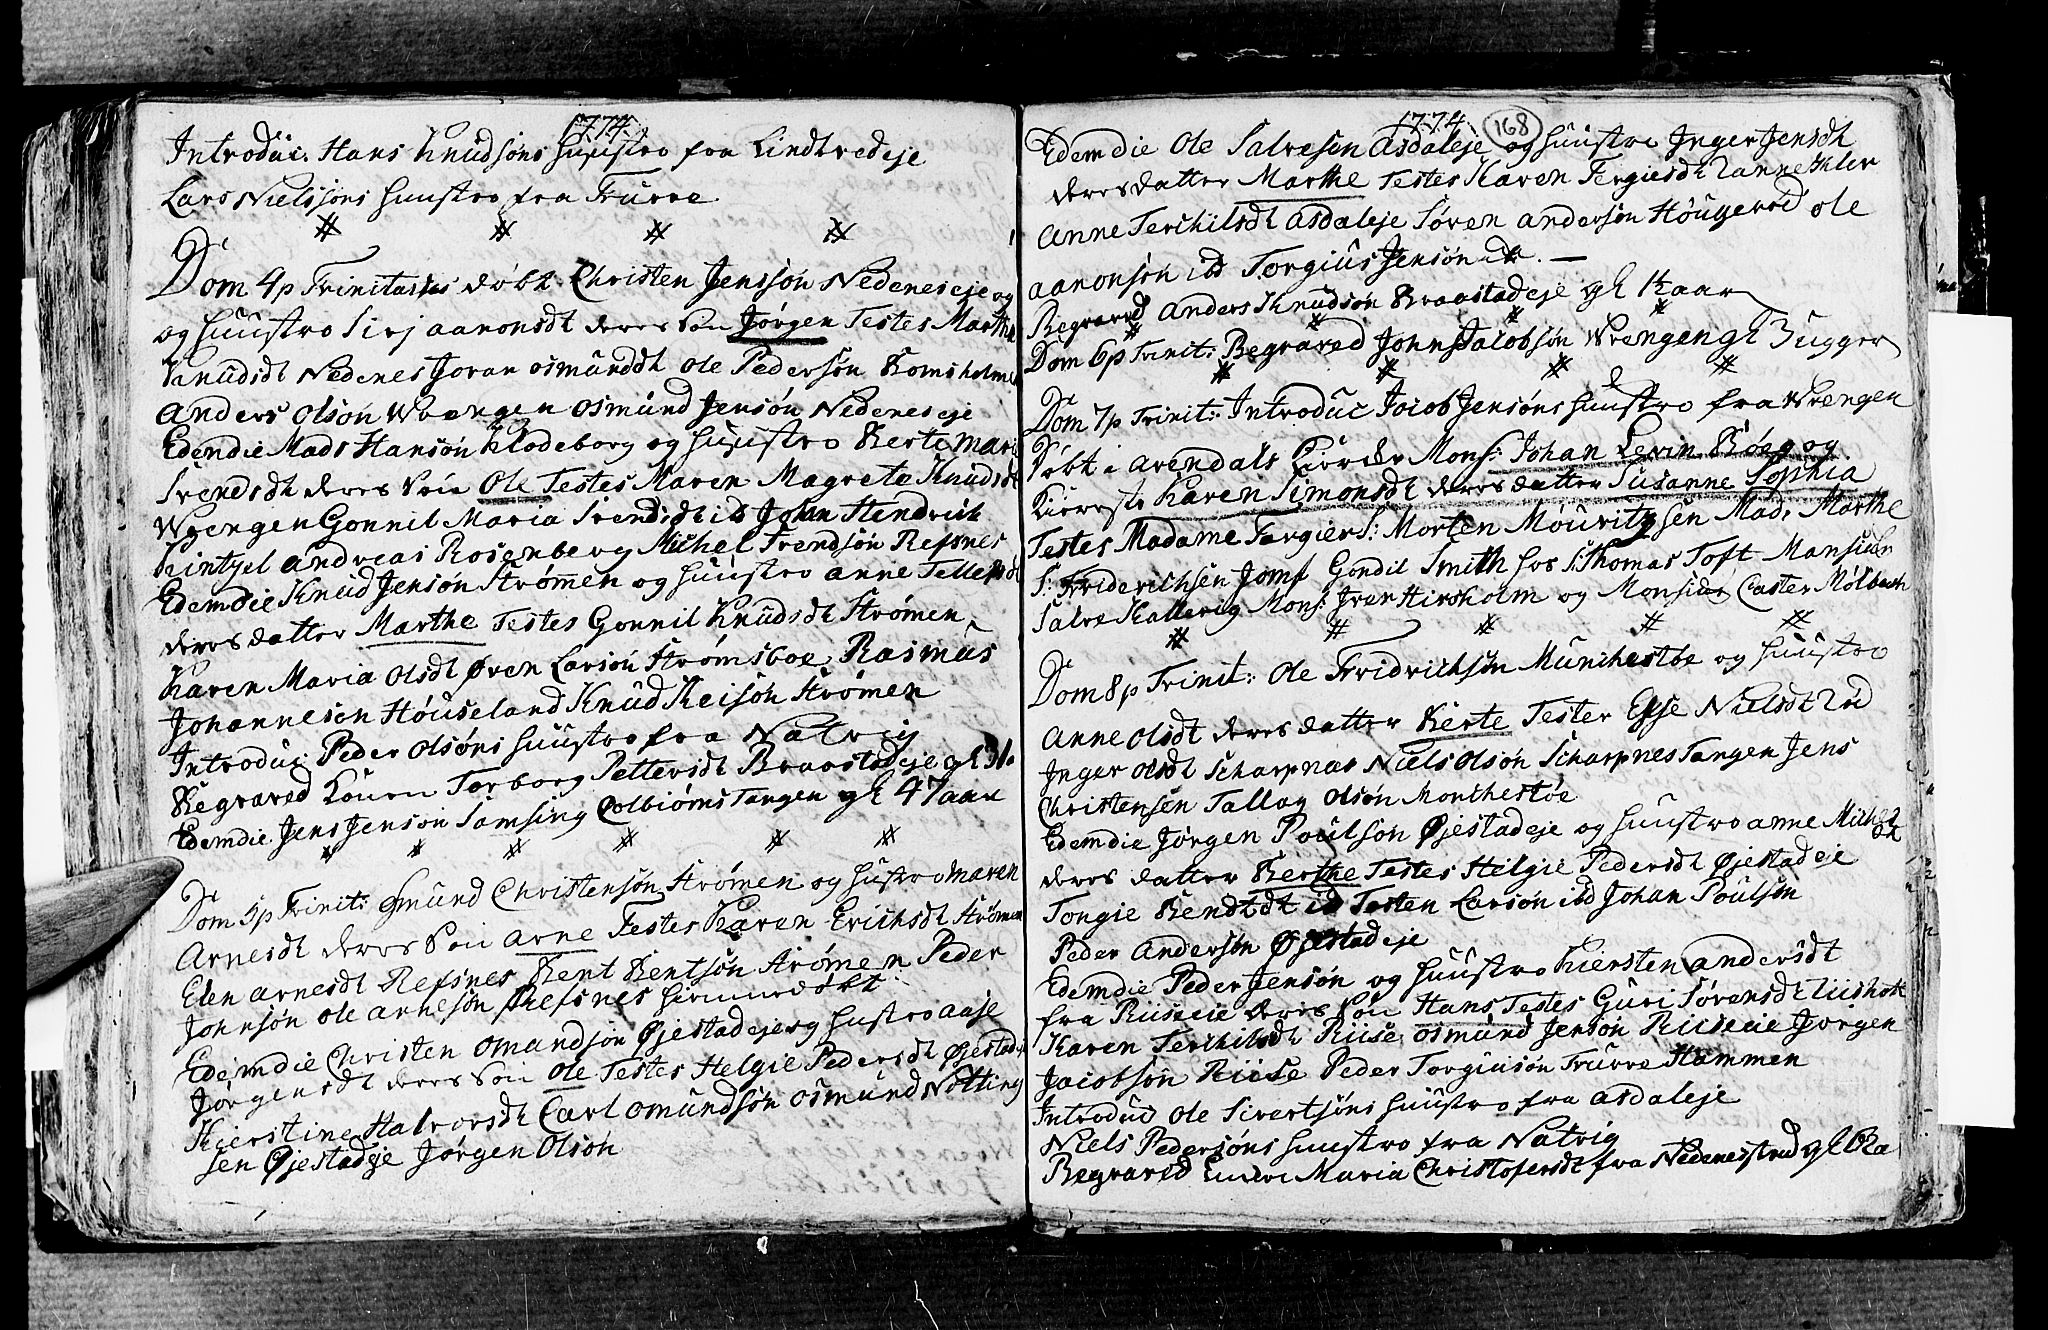 1774.
Introduc: Hans Knudsøns huustro fra Lindtvedeje
Lars Nielssøns huustro fra Trurre
Dom 4 p Trinitatis døbt Christen Jenssøn Nedeneseje og
og huustro Sirj aaronsdt deres Søn Jørgen Testes Marthe
Knudsdt Nedenes Joran osmundsdt ole Pedersøn Bomsholmen
Anders Olsøn Wrengen osmund Jensøn Nedeneseje
Edemdie Mads Hansøn Klodeborg og huustro Berte Marie
Svendsdt deres Søn Ole Testes Maren Magrete Knudsdt
Wrengen Gonnil Maria Svendsdt ibd Johan Hendrich
Kintzel andreas Rosenberg Michel Svendsøn Refsnes
Edemdie Knud Jensøn Strømmen og huustro anne Tellefsdt
deres datter Marthe Testes Gonnil Knudsdt Strømen
Karen Maria olsdt Øven Larsøn Strømsboe Rasmus
Johannesen Høuseland Knud Keisøn Strømen
Introduc: Peder Olsøns huustro fra Natvig
Begraved Konen Torborg Pettersdt Braastadeje gl 31
Edemdie Jens Jensøn Samsing Colbiørns Tangen gl 47 aar
Dom 5 p Trinit: Gmund Christensøn Strømen og hustro maren
Arnesdt deres Søn Arne Testes Karen Erichsdt Strømen
Elen arnesdt Refsnes Bent Bentsøn Strømen Peder
Johnsøn ole arnesøn Refsnes hiemmedøbt
Edemdie Christen Omundsøn Øjestadeje og hustro aase
Jørgensdt deres Søn Ole Testes Helgie Pedersdt Øjestadeje
Kierstine Halvorsdt Carl omundsøn osmund Notting
sen Øjestadeje Jørgen Olsøn
1774. 168
Edemdie Ole Salvesøn Asdaleje og huustro Inger Jensdt
deres datter Marthe Testes Karen Tergiesdt
Anne Terchilsdt asdaleje Søren andersøn Høugerød ole
aaronsøn ibd Torgius Jensøn ibd.
Begraved Anders Knudsøn Braastadeje gl 1½ aar
Dom 6 p Trinit: Begraved John Jacobsøn Wrengen gl 3 uger
Dom 7 p Trinit: Introduc Jocob Jensøns huustro fra Wrengen
Døbt i Arendals Kircke Mons: Johan Levin Bøeg og
Kiereste Karen Simonsdt deres datter Susanne Sophia
Testes Madame Targier S: Morten Mouritzsen Mad: Marthe
S: Friderichsen Jomf Gondil Smith hos S: Thomas Toft Monsieur
Salve Kallevig Mons: Iver Hirsholm og Monsieur Caster Mølbach
Dom 8 p Trinit: Ole Fridrichsøn Munchestøe og huustro
Anne olsdt deres datter Berte Testes Else Nielsdt
Inger olsdt Scharpnes Niels Olsøn Scharpnes Tangen Jens
Christensen Tallag Olsøn Monchestøe
Edemdie Jørgen Poulsøn Øjestadeje og huustro anne Michelsdt
deres datter Berthe Testes Helgie Pedersdt Øjestadeje
Tongie Bendtdt ibd Testen Larsøn ibd Johan Poulsøn
Peder Andersøn Øjestadeje
Edemdie Peder Jensøn og huustro Kiersten Andersdt
fra Riiseeie deres Søn Hans Testes Guri Sørensdt
Karen Terchilsdt Riise osmund Jensøn Riiseeie Jørgen
Jacobsøn Riise Peder Torgiusøn Trurre Hammen
Introduc Ole Sivertsøns huustro fra asdaleje
Niels Pedersøns huustro fra Natvig
Begraved Enken Maria Christofersdt fra Nedenesstrand gl